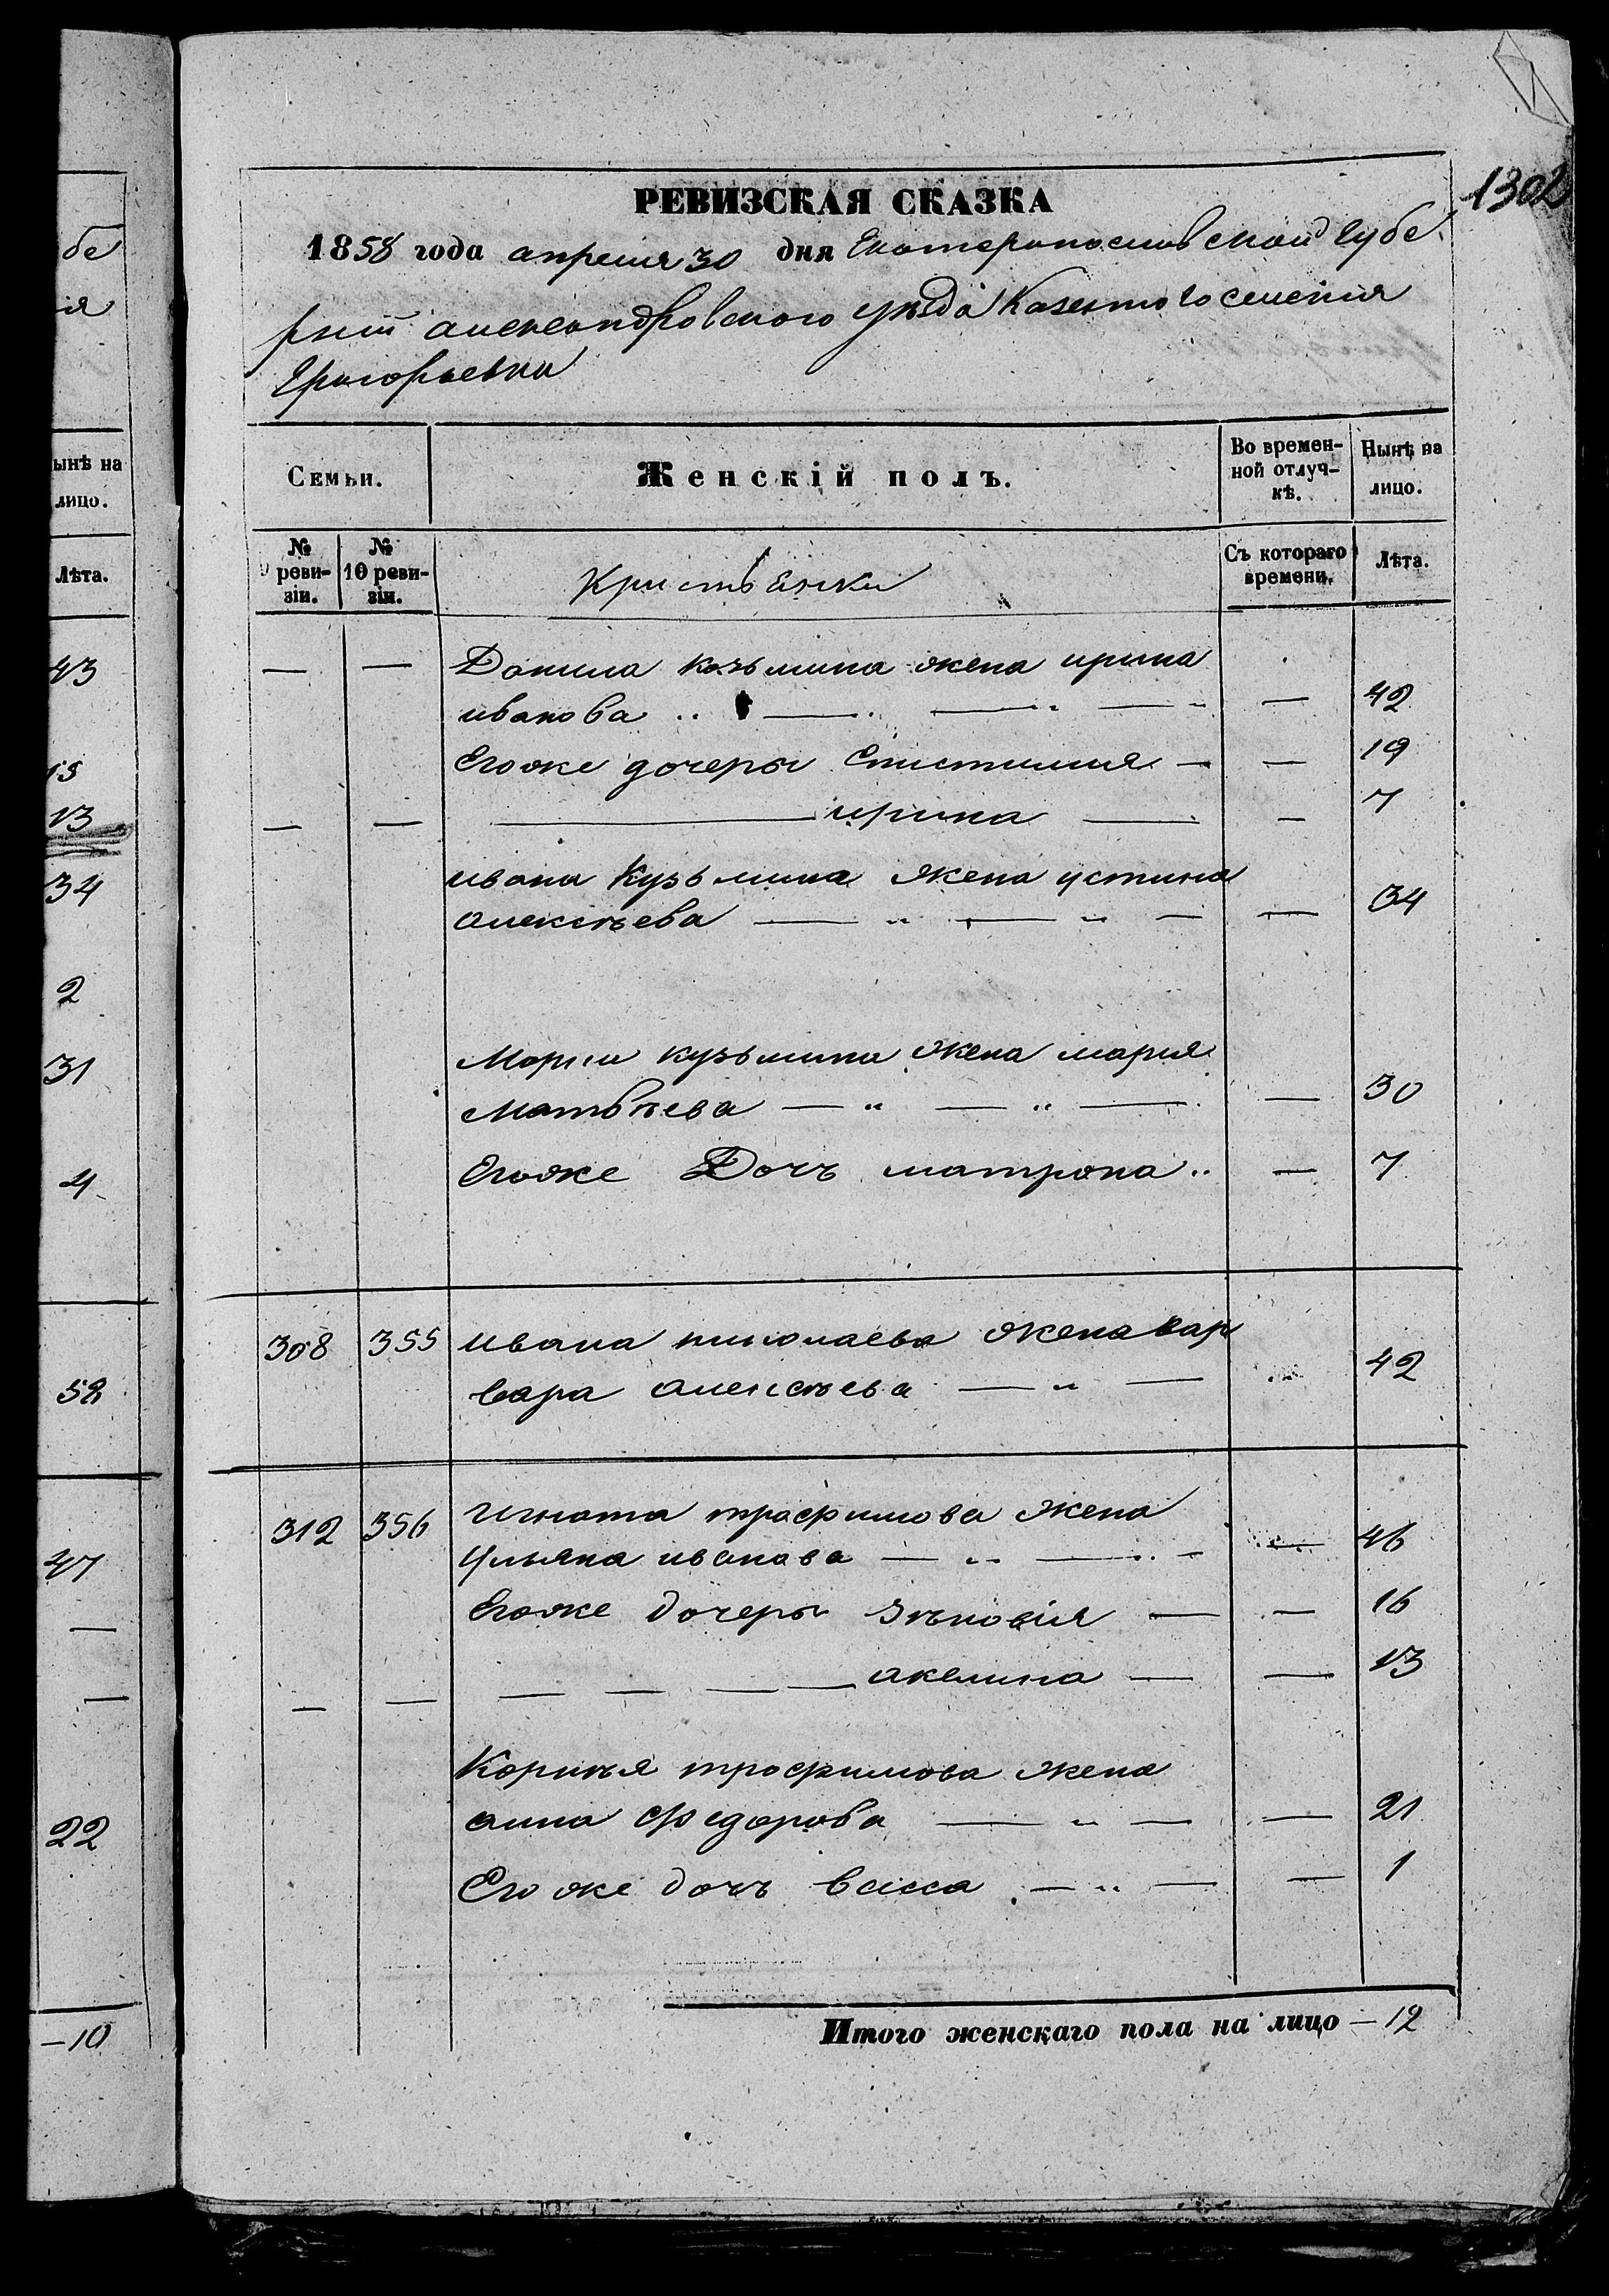 1302
РЕВИЗСКАЯ СКАЗКА
1858 года апреля 30 дня Екатеринославской губе
рнии александровского уезда Казенного селения
Григорьевки
Семьи.
Женскій полъ.
Во времен-
ной отлуч-
кѣ.
Нынѣ на
лицо.
№
реви-
зіи.
№
10 реви-
зіи.
Кристьянки
Съ котораго
времени.
Лѣта.
— — Данила козьмина жена ирина
иванова — 42
Егоже дочеры Епистимия — — 19
— — ирина — — 7
ивана Кузьмина жена устина
алексѣева — — 34
кузьмина жена мария
Матвѣева — — 30
Егоже Дочъ матрона — 7
308 355 ивана николаева жена вар
вара алексѣева — 42
312 356 Игната трофимова жена
Ульяна иванова — — 46
Егоже дочеры Зѣновія — — 16
— — акелина — — 13
Корнѣя трофимова жена
анна федорова — — 21
Егоже дочъ васса — — 1
Итого женскаго пола на лицо — 12
бе
я
ынѣ на
лицо.
Лѣта.
43
13
34
2
31
4
58
47
—
—
22
—10